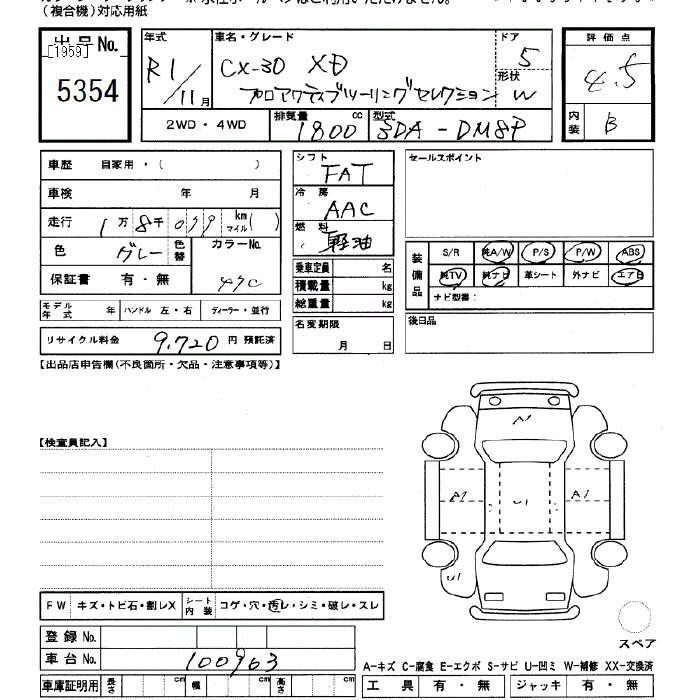 （複合機）対応用紙
出品No.
[1959]
5354
年式
R1/11月
車名・グレード
CX-30 XD
プロアクティブツーリングセレクション
ドア
5
形状
W
評価点
4.5
2WD・4WD
排気量
1800 cc
型式
3DA-DM8P
内装
B
車歴 自家用・( )
車検 年 月
走行 1万8千099 km マイル( )
色 グレー 色替 カラーNo. 47C
保証書 有・無
モデル年式 年 ハンドル 左・右 ディーラー・並行
リサイクル料金 9,720 円 預託済
シフト
FAT
冷房
AAC
燃料
軽油
乗車定員 名
積載量 kg
総重量 kg
名変期限
月 日
セールスポイント
装備品
S/R 純A/W P/S P/W ABS
純TV 純ナビ 革シート 外ナビ エアB
ナビ型番：
後日品
【出品店申告欄(不良箇所・欠品・注意事項等)】
【検査員記入】
A1
A1
U1
A1
U1
スペア
FW キズ・トビ石・割レX シート内装 コゲ・穴・汚レ・シミ・破レ・スレ
登録No.
車台No. 100963
A-キズ C-腐食 E-エクボ S-サビ U-凹ミ W-補修 XX-交換済
車庫証明用 長さ cm 幅 cm 高さ cm
工具 有・無 ジャッキ 有・無